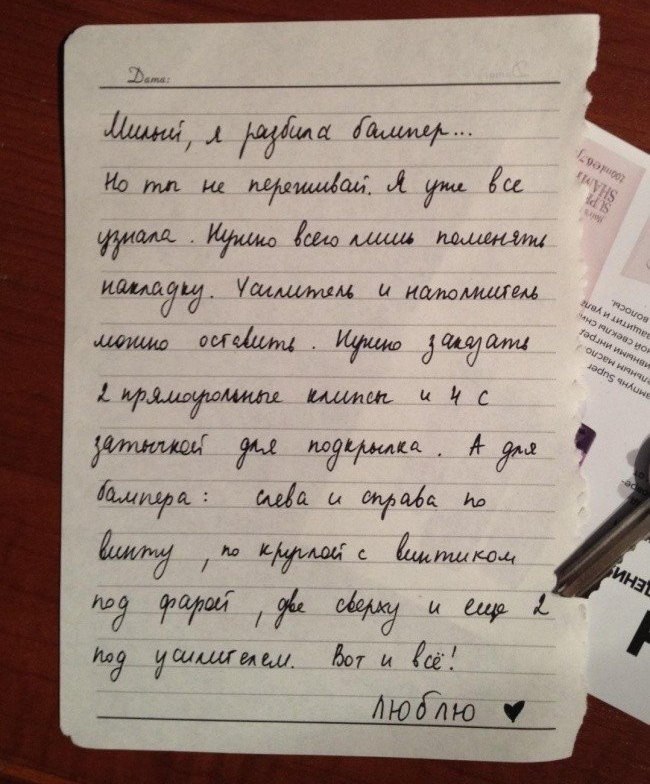 Дата:
Милый, я разбила бампер...
Но ты не переживай. Я уже все
узнала. Нужно всего лишь поменять
накладку. Усилитель и наполнитель
можно оставить. Нужно заказать
2 прямоугольные клипсы и 4 с
затычкой для подкрылка. А для
бампера: слева и справа по
винту, по круглой с винтиком
под фарой, две сверху и еще 2
под усилителем. Вот и всё!
ЛЮБЛЮ ♥